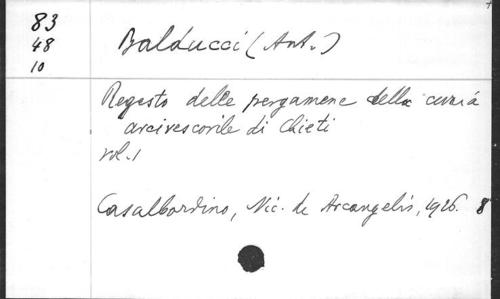 83
48
10
Balducci (Ant.)
Regesto delle pergamene della curia
arcivescovile di Chieti
vol. 1
Casalbordino, Nic. de Arcangelis, 1926. 8